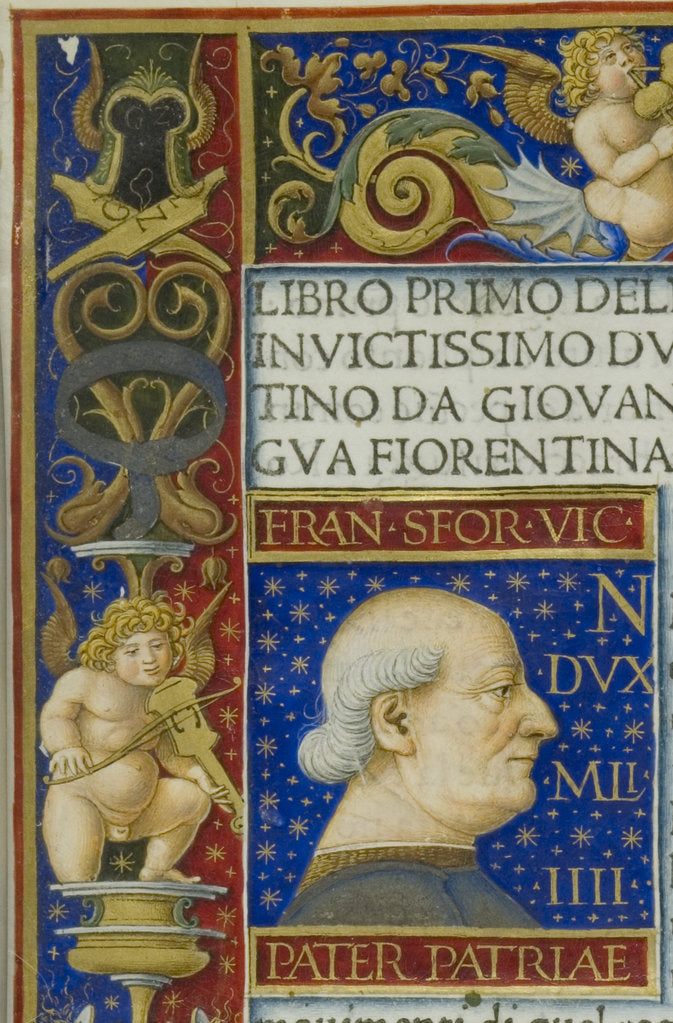 LIBRO PRIMO DEL
INVICTISSIMO DV
TINO DA GIOVAN
GVA FIORENTINA
FRAN · SFOR · VIC ·
N
DVX
MLI ·
IIII
PATER PATRIAE